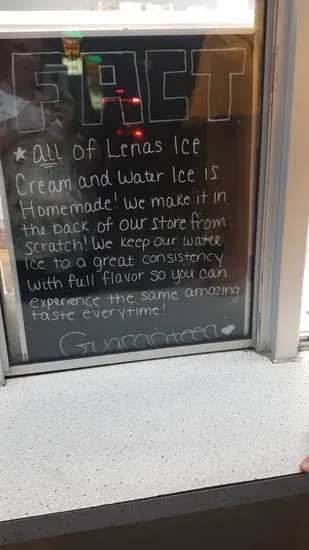 FACT
★ all of Lenas Ice
Cream and Water Ice is
Homemade! We make it in
the back of our store from
scratch! We keep our water
ice to a great consistency
with full flavor so you can
experience the same amazing
taste everytime!
Guaranteed! ♥